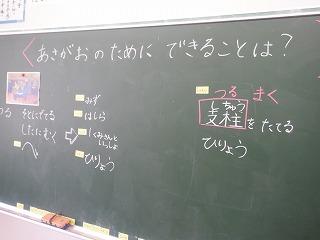 あさがおのために できることは?
つる そとにでてる
したにむく
へ
みず
はしら
くみさんと
いっしょ
ひりょう
つる まく
しちゅう
支柱をたてる
ひりょう